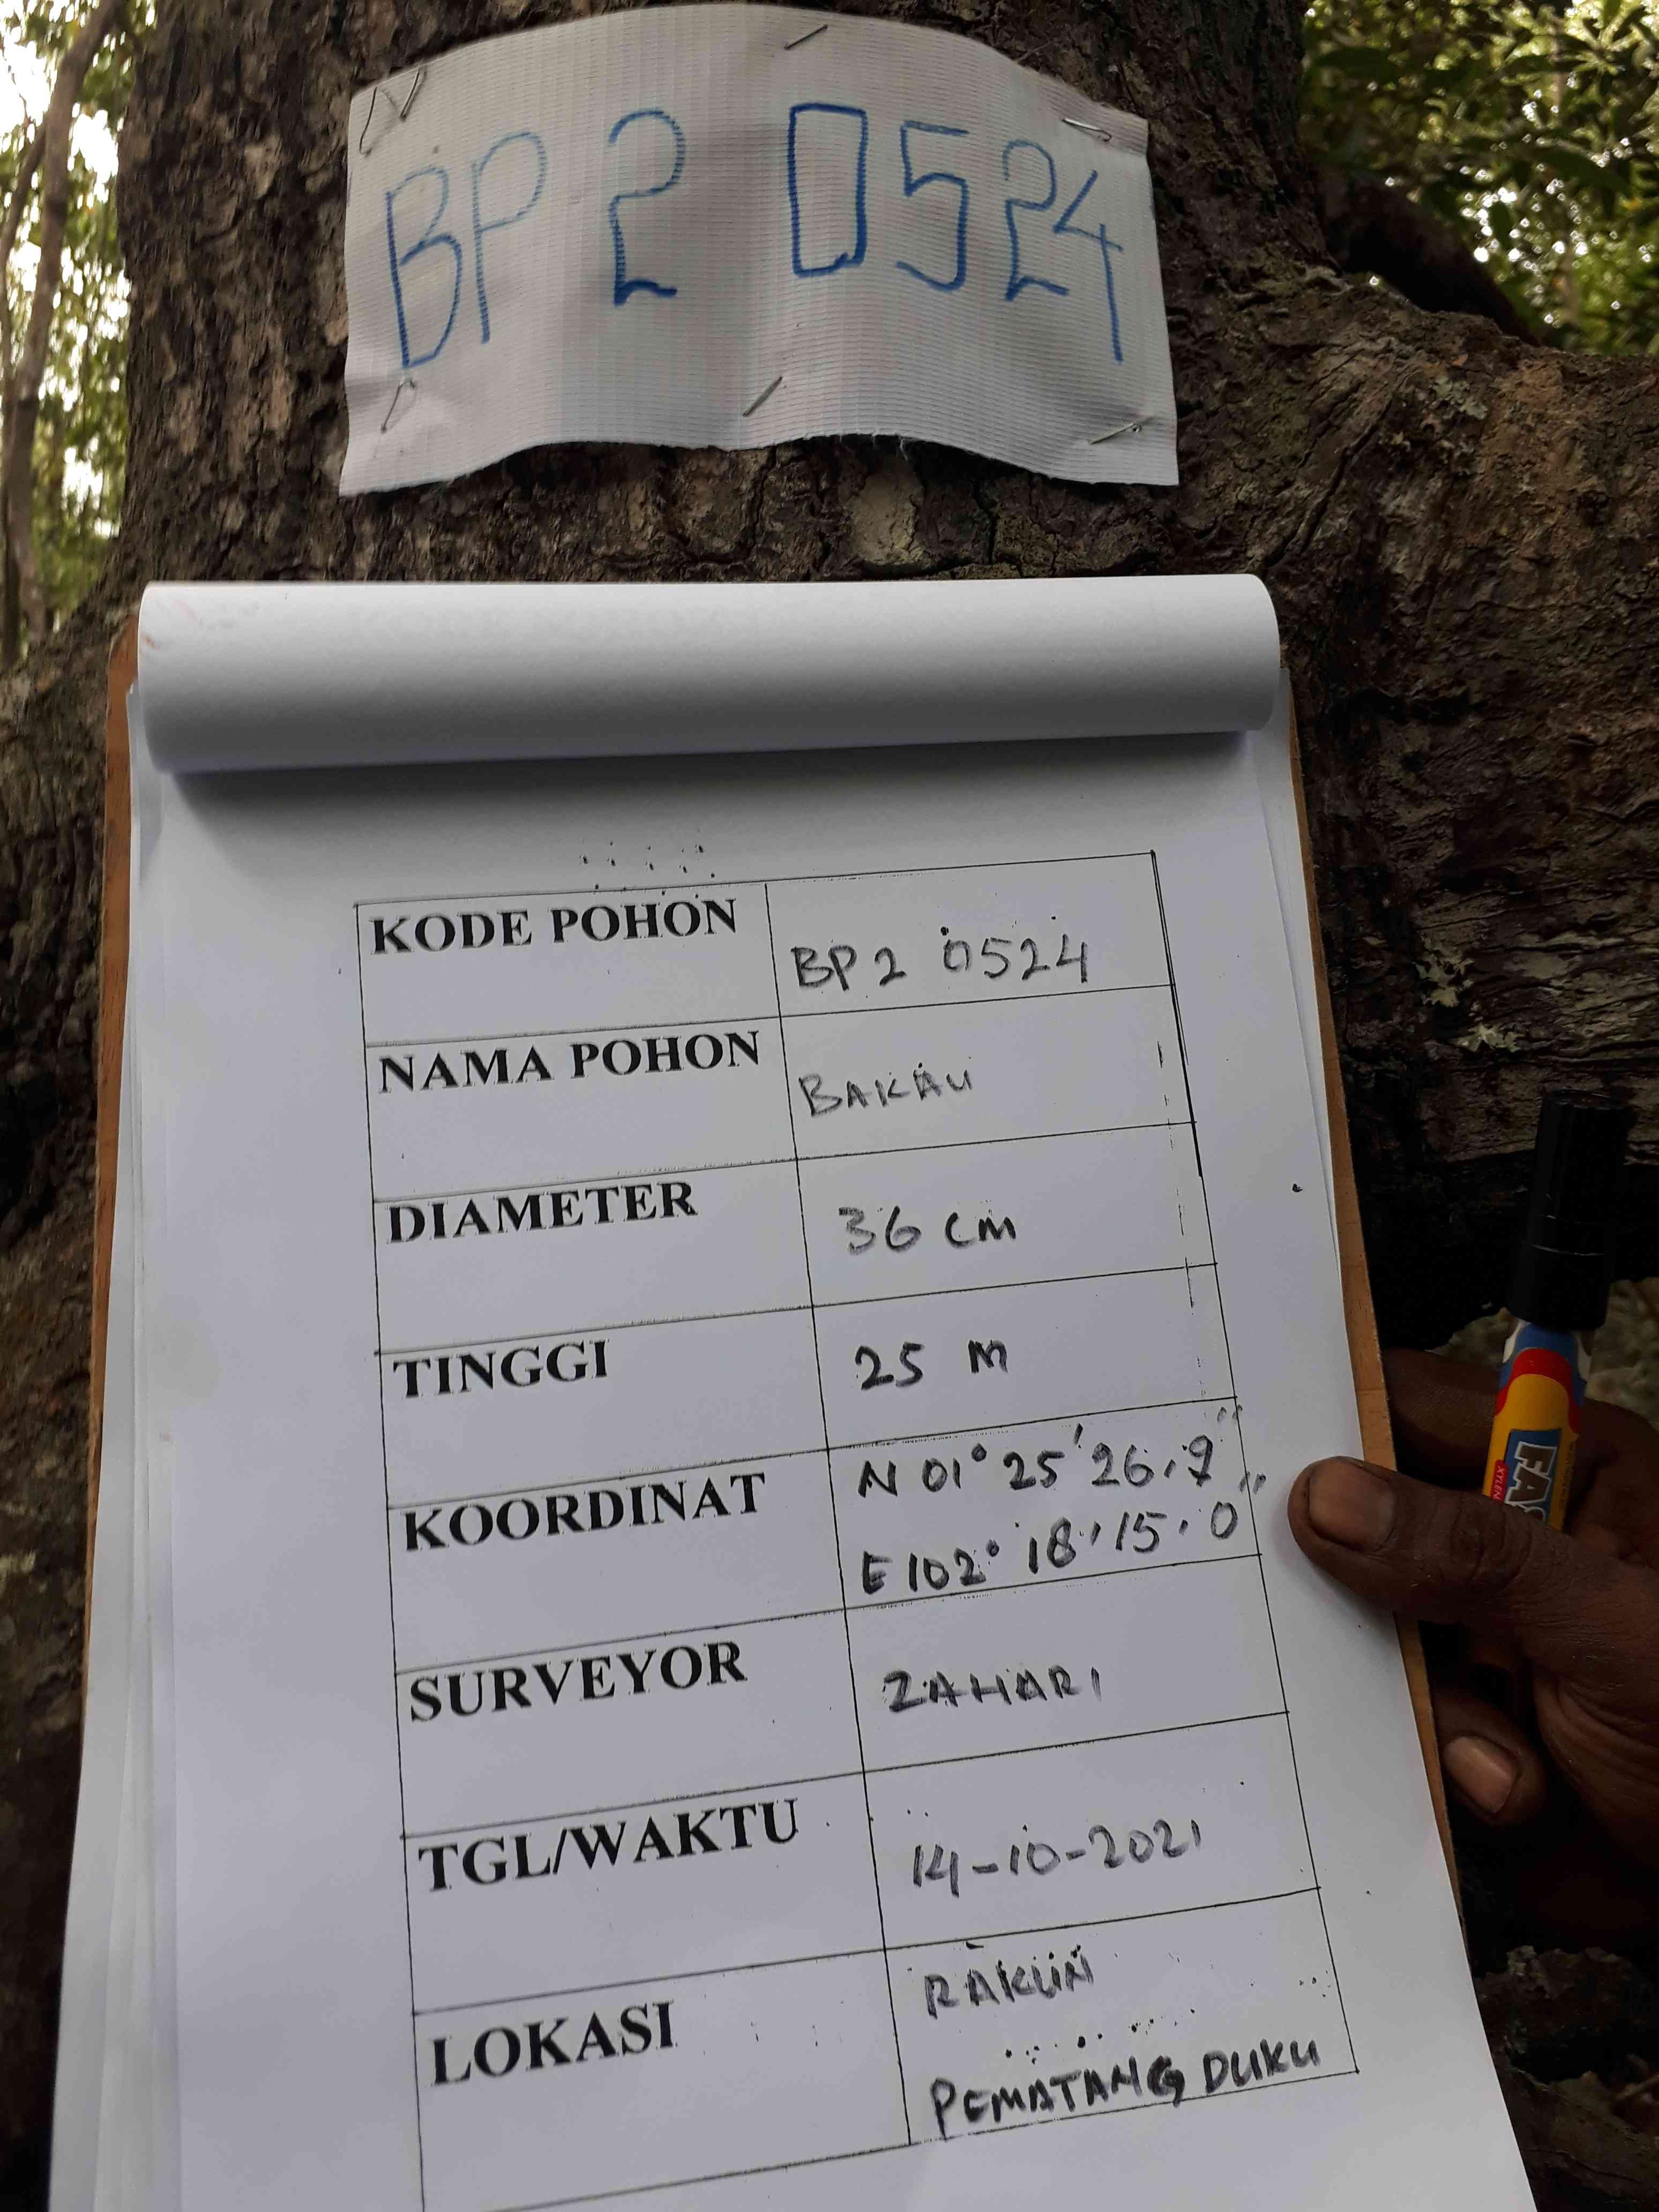 BP 2 0524
KODE POHON
BP 2 0524
NAMA POHON
BAKAU
DIAMETER
36 CM
TINGGI
25 M
KOORDINAT
N 01° 25' 26.9"
E 102° 18' 15.0"
SURVEYOR
ZAHARI
TGL/WAKTU
14-10-2021
LOKASI
RAKUN
PEMATANG DUKU